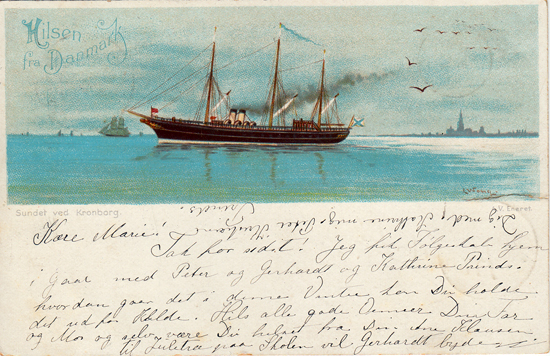 Hilsen
fra Danmark
Sundet ved Kronborg.
V. Eneret
Kære Marie!
Tak for sidst! Jeg hed Følgeskab hjem
i Gaar med Peter og Gerhardt og Kathrine Prinds.
hvordan gaar det i denne Vinter kan Du holde
det ud for Kulde. Hils alle gode Venner Din Far
og Mor og selv være Du hilset fra Din Ane Klausen
til Juletræ paa Skolen vil Gerhardt byde
Dig med, Kathrine mig, Peter
Prinds.